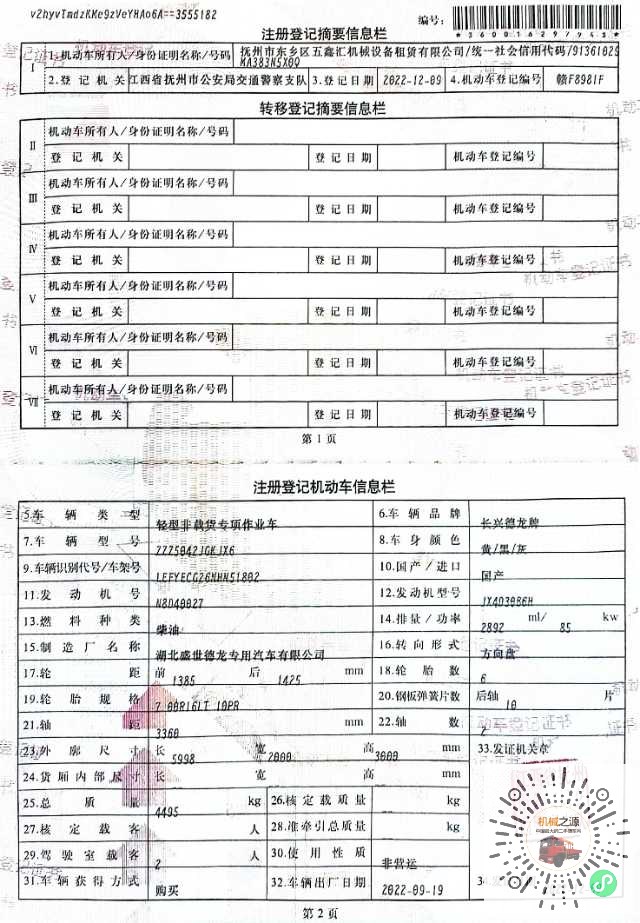 v2hyvTmdzKMe9zVeYHAo6A==3555182
编号:
*3600016297943*
注册登记摘要信息栏
I 1.机动车所有人/身份证明名称/号码 抚州市东乡区五鑫汇机械设备租赁有限公司/统一社会信用代码/91361029
MA383N5X0Q
2.登记机关 江西省抚州市公安局交通警察支队 3.登记日期 2022-12-09 4.机动车登记编号 赣F8981F
转移登记摘要信息栏
II 机动车所有人/身份证明名称/号码
登记机关 登记日期 机动车登记编号
III 机动车所有人/身份证明名称/号码
登记机关 登记日期 机动车登记编号
IV 机动车所有人/身份证明名称/号码
登记机关 登记日期 机动车登记编号
V 机动车所有人/身份证明名称/号码
登记机关 登记日期 机动车登记编号
VI 机动车所有人/身份证明名称/号码
登记机关 登记日期 机动车登记编号
VII 机动车所有人/身份证明名称/号码
登记机关 登记日期 机动车登记编号
第1页
注册登记机动车信息栏
5.车辆类型 轻型非载货专项作业车 6.车辆品牌 长兴德龙牌
7.车辆型号 ZZZ5042JGKJX6 8.车身颜色 黄/黑/灰
9.车辆识别代号/车架号 LEFYECG26NHN51802 10.国产/进口 国产
11.发动机号 N8D40027 12.发动机型号 JX4D30B6H
13.燃料种类 柴油 14.排量/功率 2892 ml/ 85 kw
15.制造厂名称 湖北盛世德龙专用汽车有限公司 16.转向形式 方向盘
17.轮距 前 1385 后 1425 mm 18.轮胎数 6
19.轮胎规格 7.00R16LT 10PR 20.钢板弹簧片数 后轴 10 片
21.轴距 3360 mm 22.轴数 2
23.外廓尺寸 长 5998 宽 2000 高 3000 mm 33.发证机关章
24.货厢内部尺寸 长 宽 高 mm
25.总质量 4495 kg 26.核定载质量 kg
27.核定载客 人 28.准牵引总质量 kg
29.驾驶室载客 2 人 30.使用性质 非营运
31.车辆获得方式 购买 32.车辆出厂日期 2022-09-19
机械之源
第2页